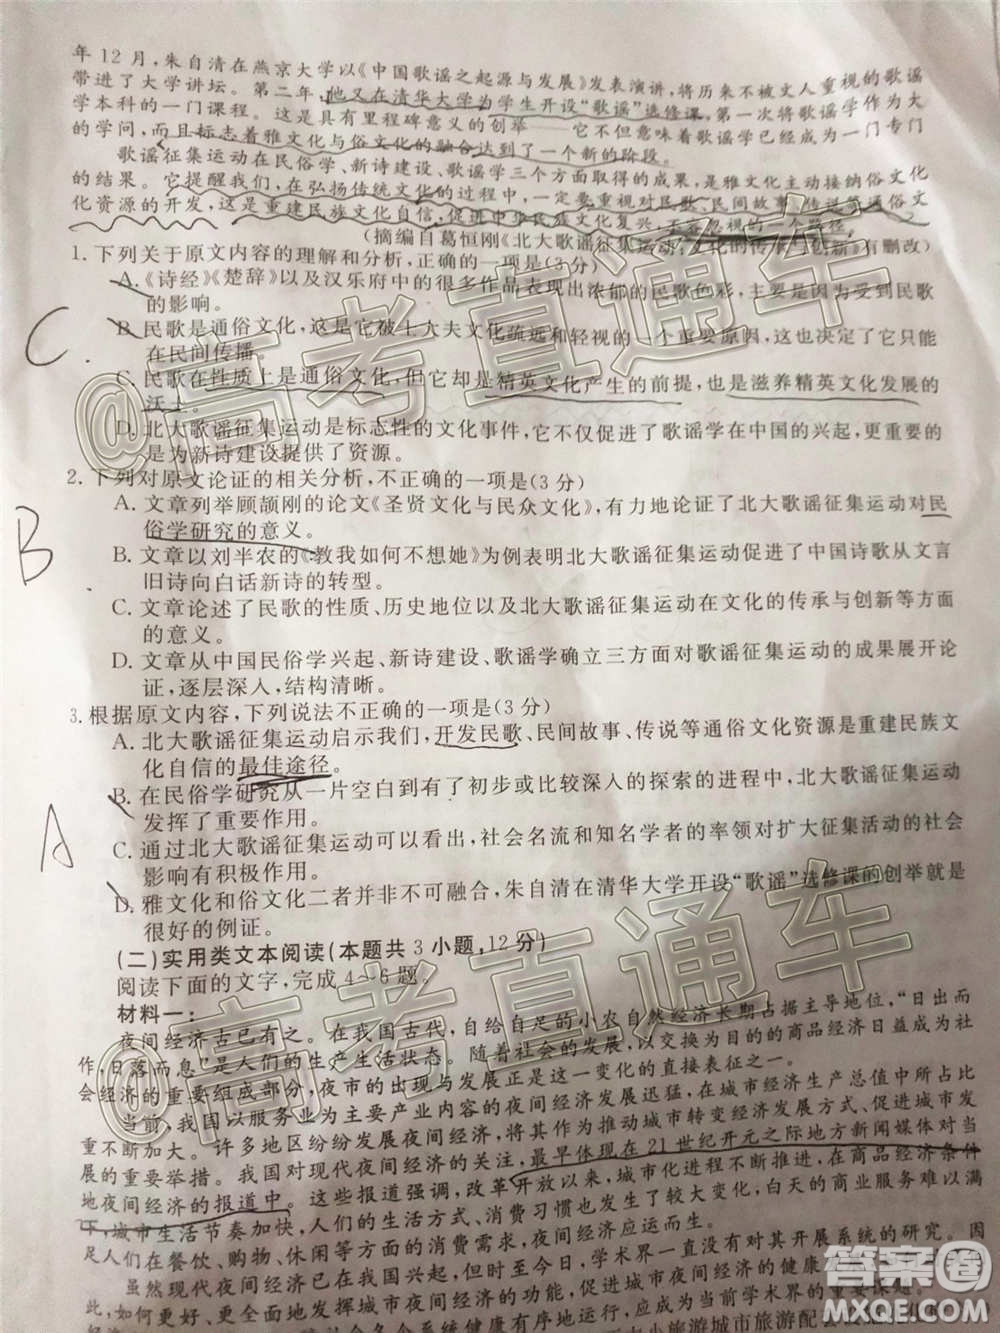 年12月,朱自清在燕京大学以《中国歌谣之起源与发展》发表演讲,将历来不被文人重视的歌谣
带进了大学讲坛。第二年,他又在清华大学为学生开设“歌谣”选修课,第一次将歌谣学作为大
学本科的一门课程。这是具有里程碑意义的创举——它不但意味着歌谣学已经成为一门专门
的学问,而且标志着雅文化与俗文化的融合达到了一个新的阶段。
歌谣征集运动在民俗学、新诗建设、歌谣学三个方面取得的成果,是雅文化主动接纳俗文化
的结果。它提醒我们,在弘扬传统文化的过程中,一定要重视对民歌、民间故事、传说等通俗文
化资源的开发,这是重建民族文化自信,促进中华民族文化复兴,不容忽视的一个路径。
(摘编自葛恒刚《北大歌谣征集运动:文化的传承与创新》,有删改)
1.下列关于原文内容的理解和分析,正确的一项是(3分)
A.《诗经》《楚辞》以及汉乐府中的很多作品表现出浓郁的民歌色彩,主要是受到民歌
的影响。
C.
B.民歌是通俗文化,这是它被士大夫文化疏远和轻视的一个重要原因,这决定了它只能
在民间传播。
C.民歌在性质上是通俗文化,但它却是精英文化产生的前提,也是滋养精英文化发展的
沃土。
D.北大歌谣征集运动是标志性的文化事件,它不仅促进了歌谣学在中国的兴起,更重要的
是为新诗建设提供了资源。
2.下列对原文论证的相关分析,不正确的一项是(3分)
A.文章列举顾颉刚的论文《圣贤文化与民众文化》,有力地论证了北大歌谣征集运动对民
俗学研究的意义。
B
B.文章以刘半农的《教我如何不想她》为例表明北大歌谣征集运动促进了中国诗歌从文言
旧诗向白话新诗的转型。
C.文章论述了民歌的性质、历史地位以及北大歌谣征集运动在文化的传承与创新等方面
的意义。
D.文章从中国民俗学兴起、新诗建设、歌谣学确立三方面对歌谣征集运动的成果展开论
证,逐层深入,结构清晰。
3.根据原文内容,下列说法不正确的一项是(3分)
A.北大歌谣征集运动启示我们,开发民歌、民间故事、传说等通俗文化资源是重建民族文
化自信的最佳途径。
B.在民俗学研究从一片空白到有了初步或比较深入的探索的进程中,北大歌谣征集运动
发挥了重要作用。
A
C.通过北大歌谣征集运动可以看出,社会名流和知名学者的率领对扩大征集活动的社会
影响有积极作用。
D.雅文化和俗文化二者并非不可融合,朱自清在清华大学开设“歌谣”选修课的创举就是
很好的例证。
(二)实用类文本阅读(本题共3小题,12分)
阅读下面的文字,完成4~6题。
材料一:
夜间经济古已有之。在我国古代,自给自足的小农自然经济长期占据主导地位,“日出而
作,日落而息”是人们的生产生活状态。随着社会的发展,以交换为目的的商品经济日益成为社
会经济的重要组成部分,夜市的出现与发展正是这一变化的直接表征之一。
当前,我国以服务业为主要产业内容的夜间经济发展迅猛,在城市经济生产总值中所占比
重不断加大。许多地区纷纷发展夜间经济,将其作为推动城市转变经济发展方式、促进经济发
展的重要举措。我国对现代夜间经济的关注,最早体现在21世纪开元之际地方新闻媒体对当
地夜间经济的报道中。这些报道强调,改革开放以来,城市化进程不断推进,在商品经济条件
下,城市生活节奏加快,人们的生活方式、消费习惯也发生了较大变化,白天的商业服务难以满
足人们在餐饮、购物、休闲等方面的消费需求,夜间经济应运而生。
虽然现代夜间经济已在我国兴起,但时至今日,学术界一直没有对其开展系统的研究。因
此,如何更好、更全面地发挥夜间经济的功能,促进城市夜间经济健康
@高考直通车
@高考直通车
答案圈
MXQE.COM